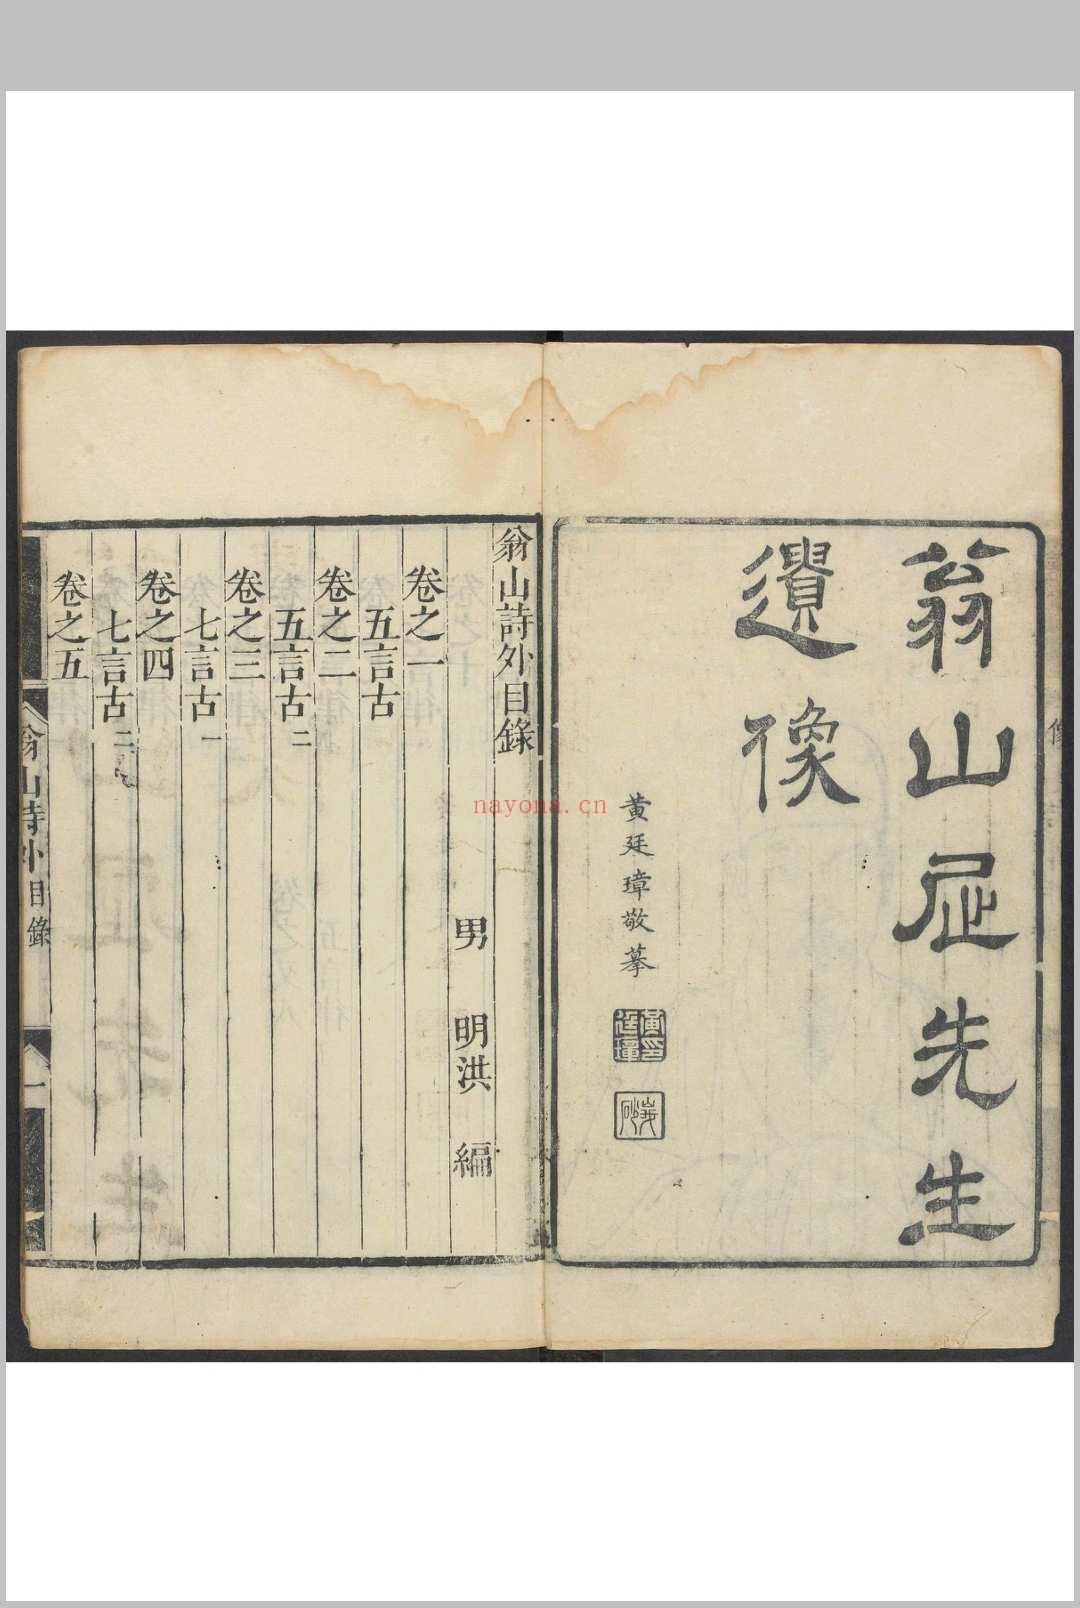 翁山屈先生
遺像
黃廷璋敬摹
翁山詩外目錄
男 明洪 編
卷之一
五言古
卷之二
五言古二
卷之三
七言古一
卷之四
七言古二
卷之五
翁山詩外 目錄
一
nayona.cn